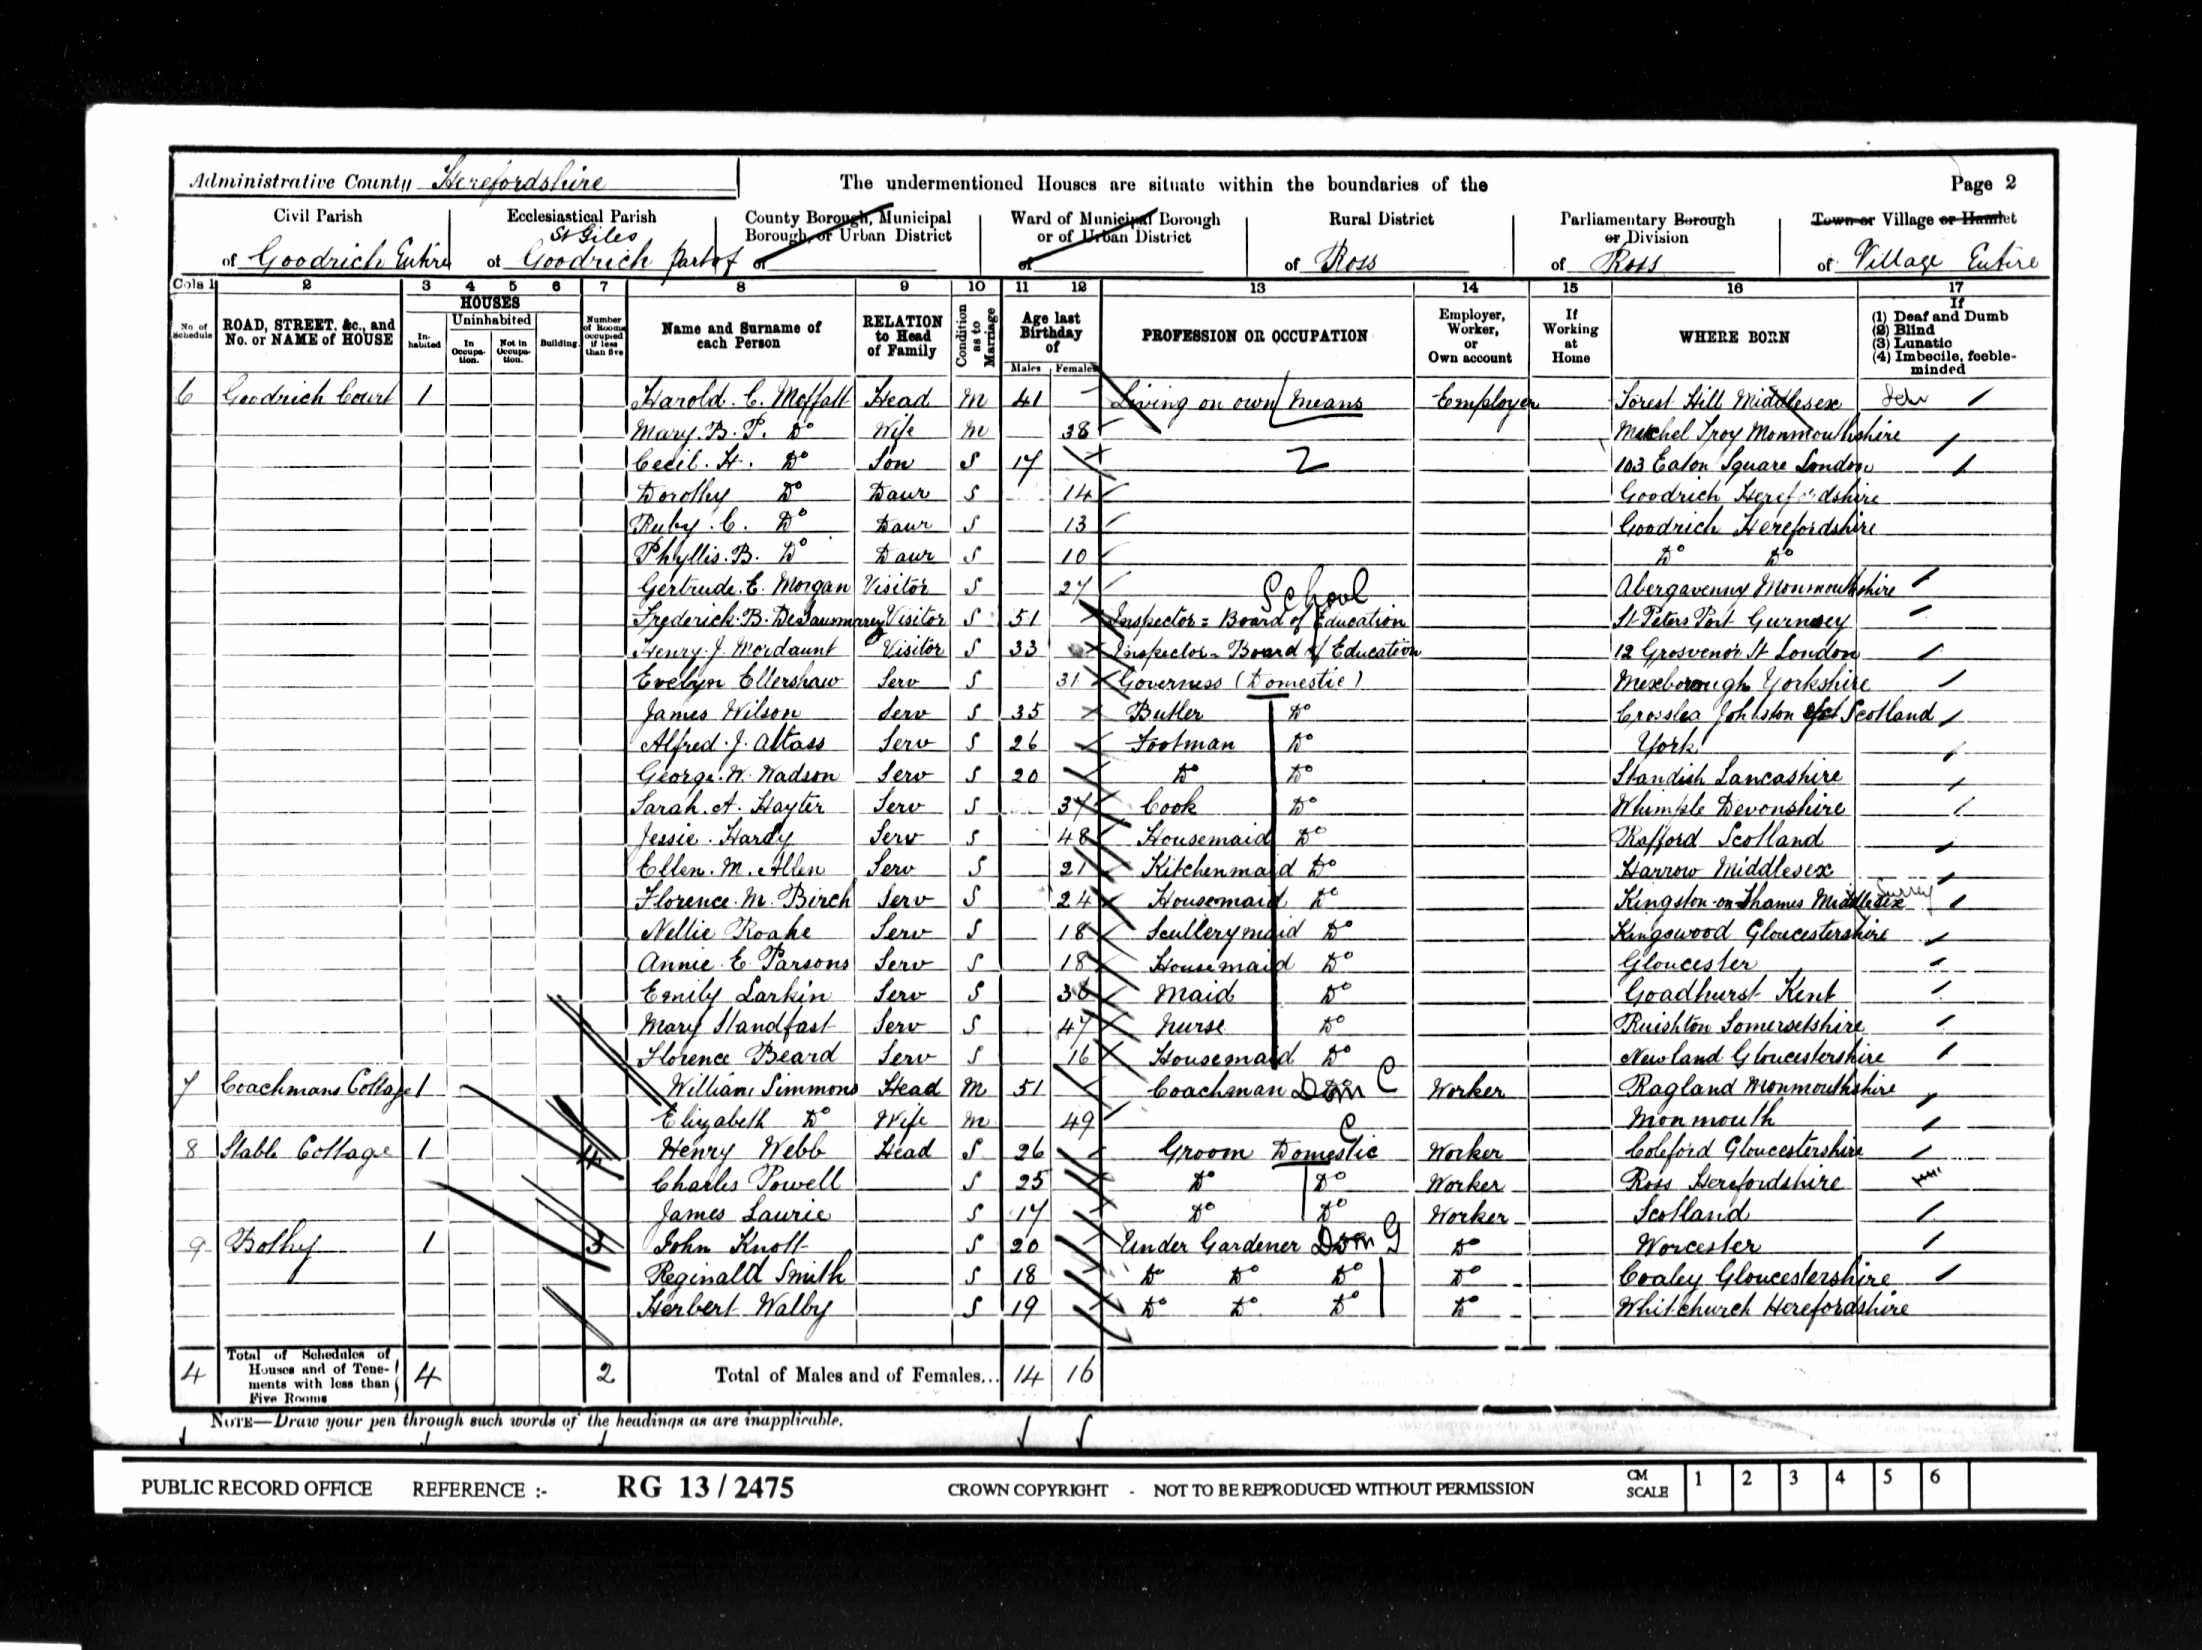 Administrative County Herefordshire The undermentioned Houses are situate within the boundaries of the Page 2
Civil Parish Ecclesiastical Parish County Borough, Municipal Borough, or Urban District Ward of Municipal Borough or of Urban District Rural District Parliamentary Borough or Division Town or Village or Hamlet
of Goodrich Entire of St Giles Goodrich part of of of of Ross of Ross of Village Entire
Cols 1 2 3 4 5 6 7 8 9 10 11 12 13 14 15 16 17
No. of Schedule ROAD, STREET, &c., and No. or NAME of HOUSE HOUSES Inhabited Uninhabited In Occupation. Not in Occupation. Building. Number of Rooms occupied if less than five Name and Surname of each Person RELATION to Head of Family Condition as to Marriage Age last Birthday of Males Females PROFESSION OR OCCUPATION Employer, Worker, or Own account If Working at Home WHERE BORN If (1) Deaf and Dumb (2) Blind (3) Lunatic (4) Imbecile, feeble-minded
6 Goodrich Court 1 Harold. C. Moffatt Head M 41 Living on own Means Employer Forest Hill Middlesex
Mary. B. P. Do Wife M 38 Mitchel Troy Monmouthshire
Cecil. H. Do Son S 17 2 103 Eaton Square London
Dorothy Do Daur S 14 Goodrich Herefordshire
Ruby. C. Do Daur S 13 Goodrich Herefordshire
Phyllis. B. Do Daur S 10 Do Do
Gertrude. E. Morgan Visitor S 27 Abergavenny Monmouthshire
School
Frederick. B. DeSausmarez Visitor S 51 Inspector = Board of Education St Peters Port Gurnsey
Henry. J. Mordaunt Visitor S 33 Inspector = Board of Education 12 Grosvenor St London
Evelyn Ellershaw Serv S 31 Governess (Domestic) Mexborough Yorkshire
James Wilson Serv S 35 Butler Do Johnston Scotland
Alfred. J. Altass Serv S 26 Footman Do York
George. W. Wadson Serv S 20 Do Do Standish Lancashire
Sarah. A. Hayter Serv S 37 Cook Do Whimple Devonshire
Jessie. Hardy Serv S 48 Housemaid Do Rafford Scotland
Ellen. M. Allen Serv S 21 Kitchenmaid Do Harrow Middlesex
Florence. M. Birch Serv S 24 Housemaid Do Kingston-on-Thames Middlesex Surrey
Nellie Roake Serv S 18 Scullerymaid Do Kingswood Gloucestershire
Annie. E Parsons Serv S 18 Housemaid Do Gloucester
Emily Larkin Serv S 36 Maid Do Goadhurst Kent
Mary Standfast Serv S 47 Nurse Do Ruishton Somersetshire
Florence Beard Serv S 16 Housemaid Do Newland Gloucestershire
7 Coachmans Cottage 1 William Simmons Head M 51 Coachman Dom C Worker Ragland Monmouthshire
Elizabeth Do Wife M 49 Monmouth
8 Stable Cottage 1 4 Henry Webb Head S 26 Groom Domestic C Worker Coleford Gloucestershire
Charles Powell S 25 Do Do Worker Ross Herefordshire
James Laurie S 17 Do Do Worker Scotland
9 Bothy 1 3 John Knott S 20 Under Gardener Dom G Do Worcester
Reginald Smith S 18 Do Do Do Do Coaley Gloucestershire
Herbert Walby S 19 Do Do Do Do Whitchurch Herefordshire
4 Total of Schedules of Houses and of Tenements with less than Five Rooms 4 2 Total of Males and of Females... 14 16
NOTE—Draw your pen through such words of the headings as are inapplicable.
PUBLIC RECORD OFFICE REFERENCE :- RG 13 / 2475 CROWN COPYRIGHT - NOT TO BE REPRODUCED WITHOUT PERMISSION CM SCALE 1 2 3 4 5 6